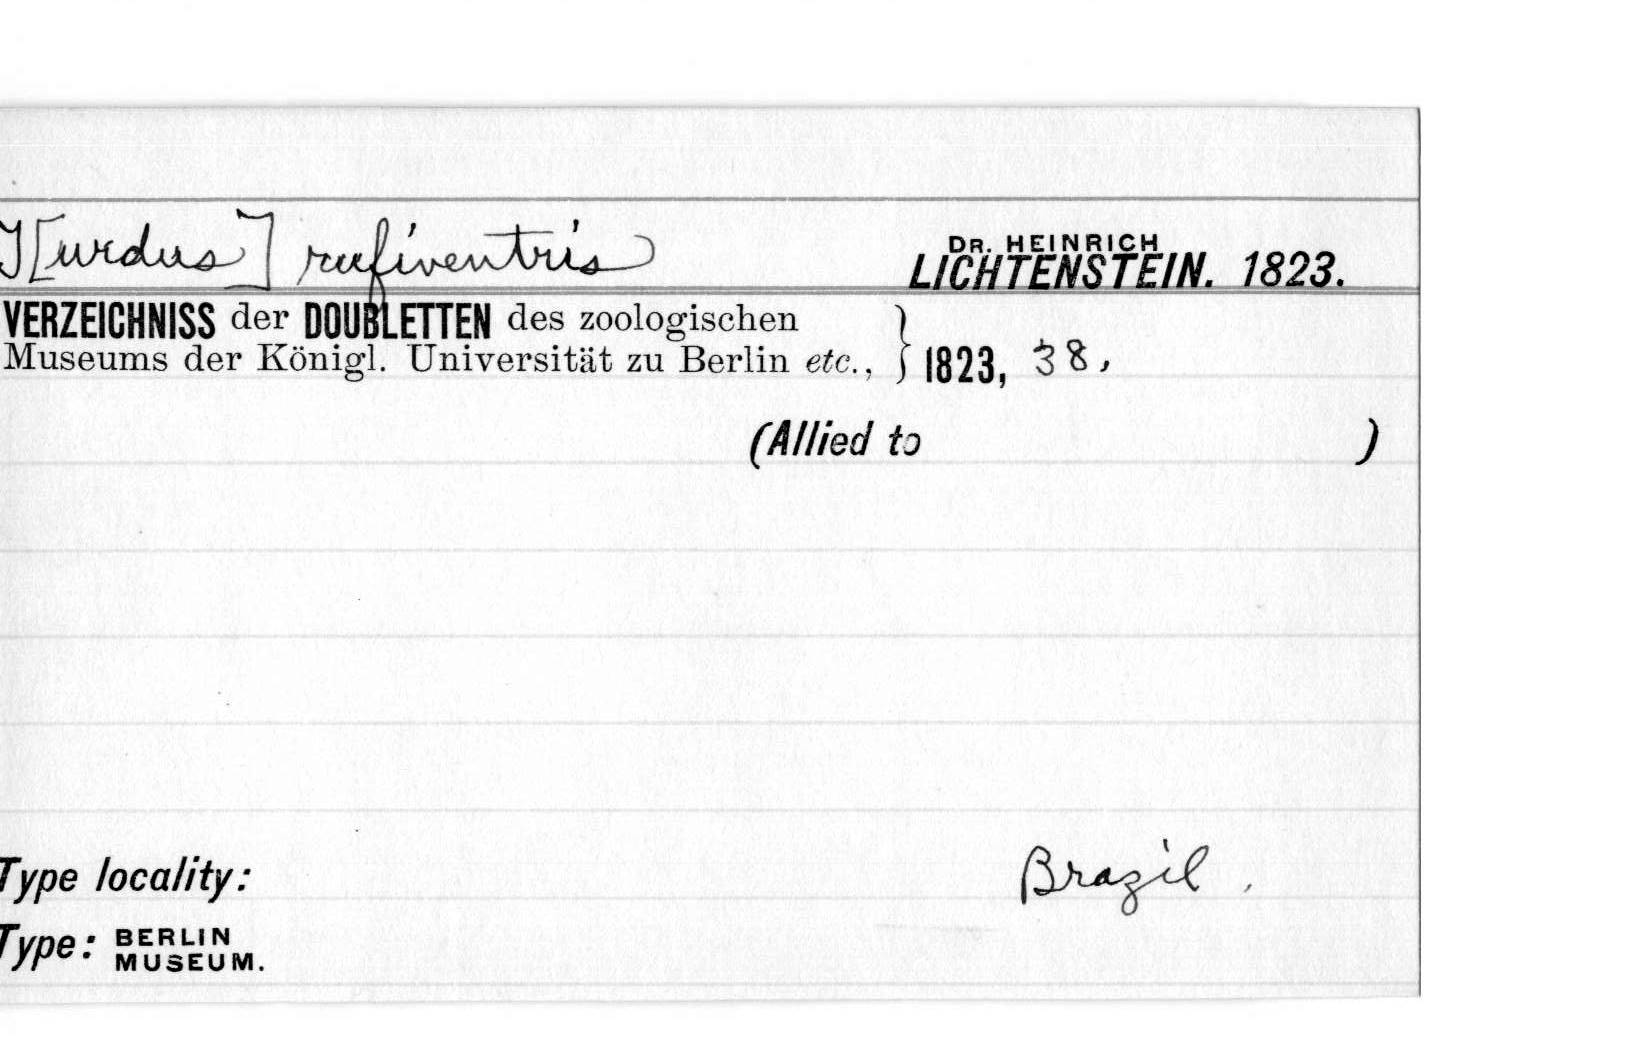 T[urdus] rufiventris DR. HEINRICH LICHTENSTEIN. 1823.
VERZEICHNISS der DOUBLETTEN des zoologischen
Museums der Königl. Universität zu Berlin etc., } 1823, 38,
(Allied to )
Type locality: Brazil.
Type: BERLIN MUSEUM.